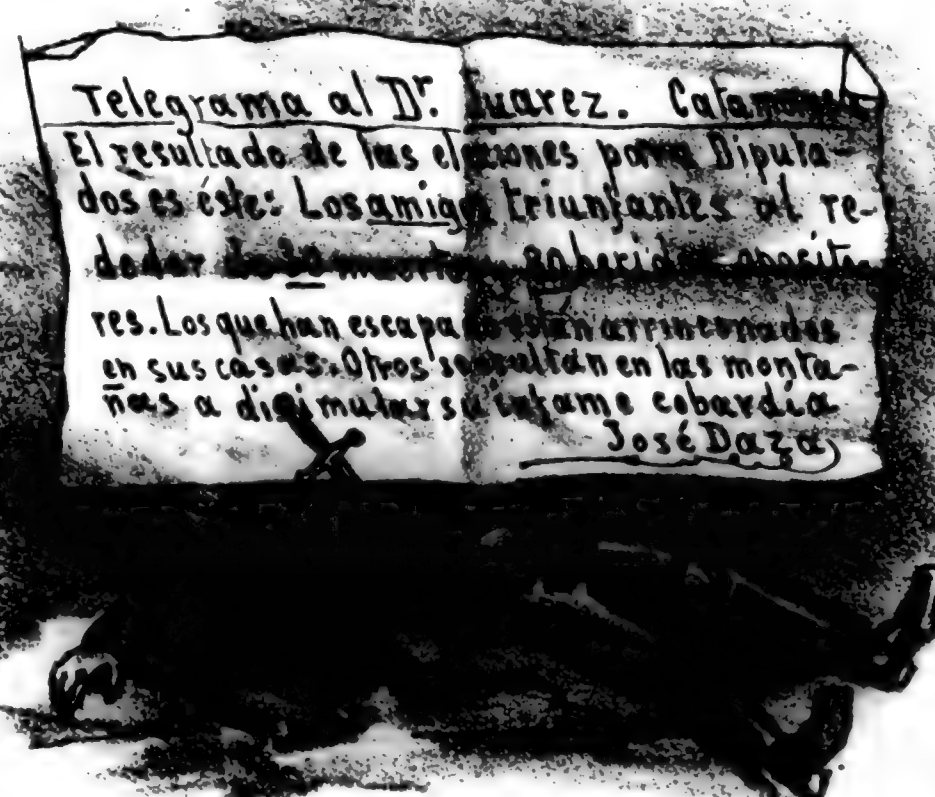 Telegrama al Dr. Juarez. Catamarca
El resultado de las elecciones para Diputa-
dos es éste: Los amigos triunfantes al re-
dedor de 20 muertos
res. Los que han escapado están arrinconados
en sus casas. Otros se ocultan en las monta-
ñas a disimular su infame cobardía
José Daza